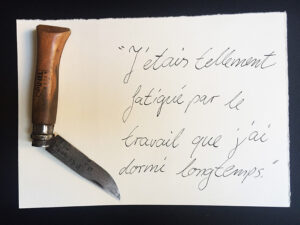 "J'étais tellement
fatigué par le
travail que j'ai
dormi longtemps."